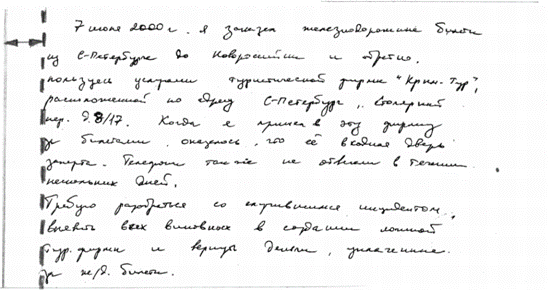 7 июля 2000 г. я заказал железнодорожные билеты
из С-Петербурга до Новороссийска и обратно,
пользуясь услугами туристической фирмы "Крим-Тур",
расположенной по адресу С-Петербург, Столярный
пер. д. 8/17. Когда я пришел в эту фирму
за билетами, оказалось, что её входная дверь
заперта. Телефоны также не отвечали в течении
нескольких дней.
Требую разобраться со случившимся инцидентом,
выявить всех виновных в создании ложной
тур. фирмы и вернуть деньги, уплаченные
за ж/д. билеты.